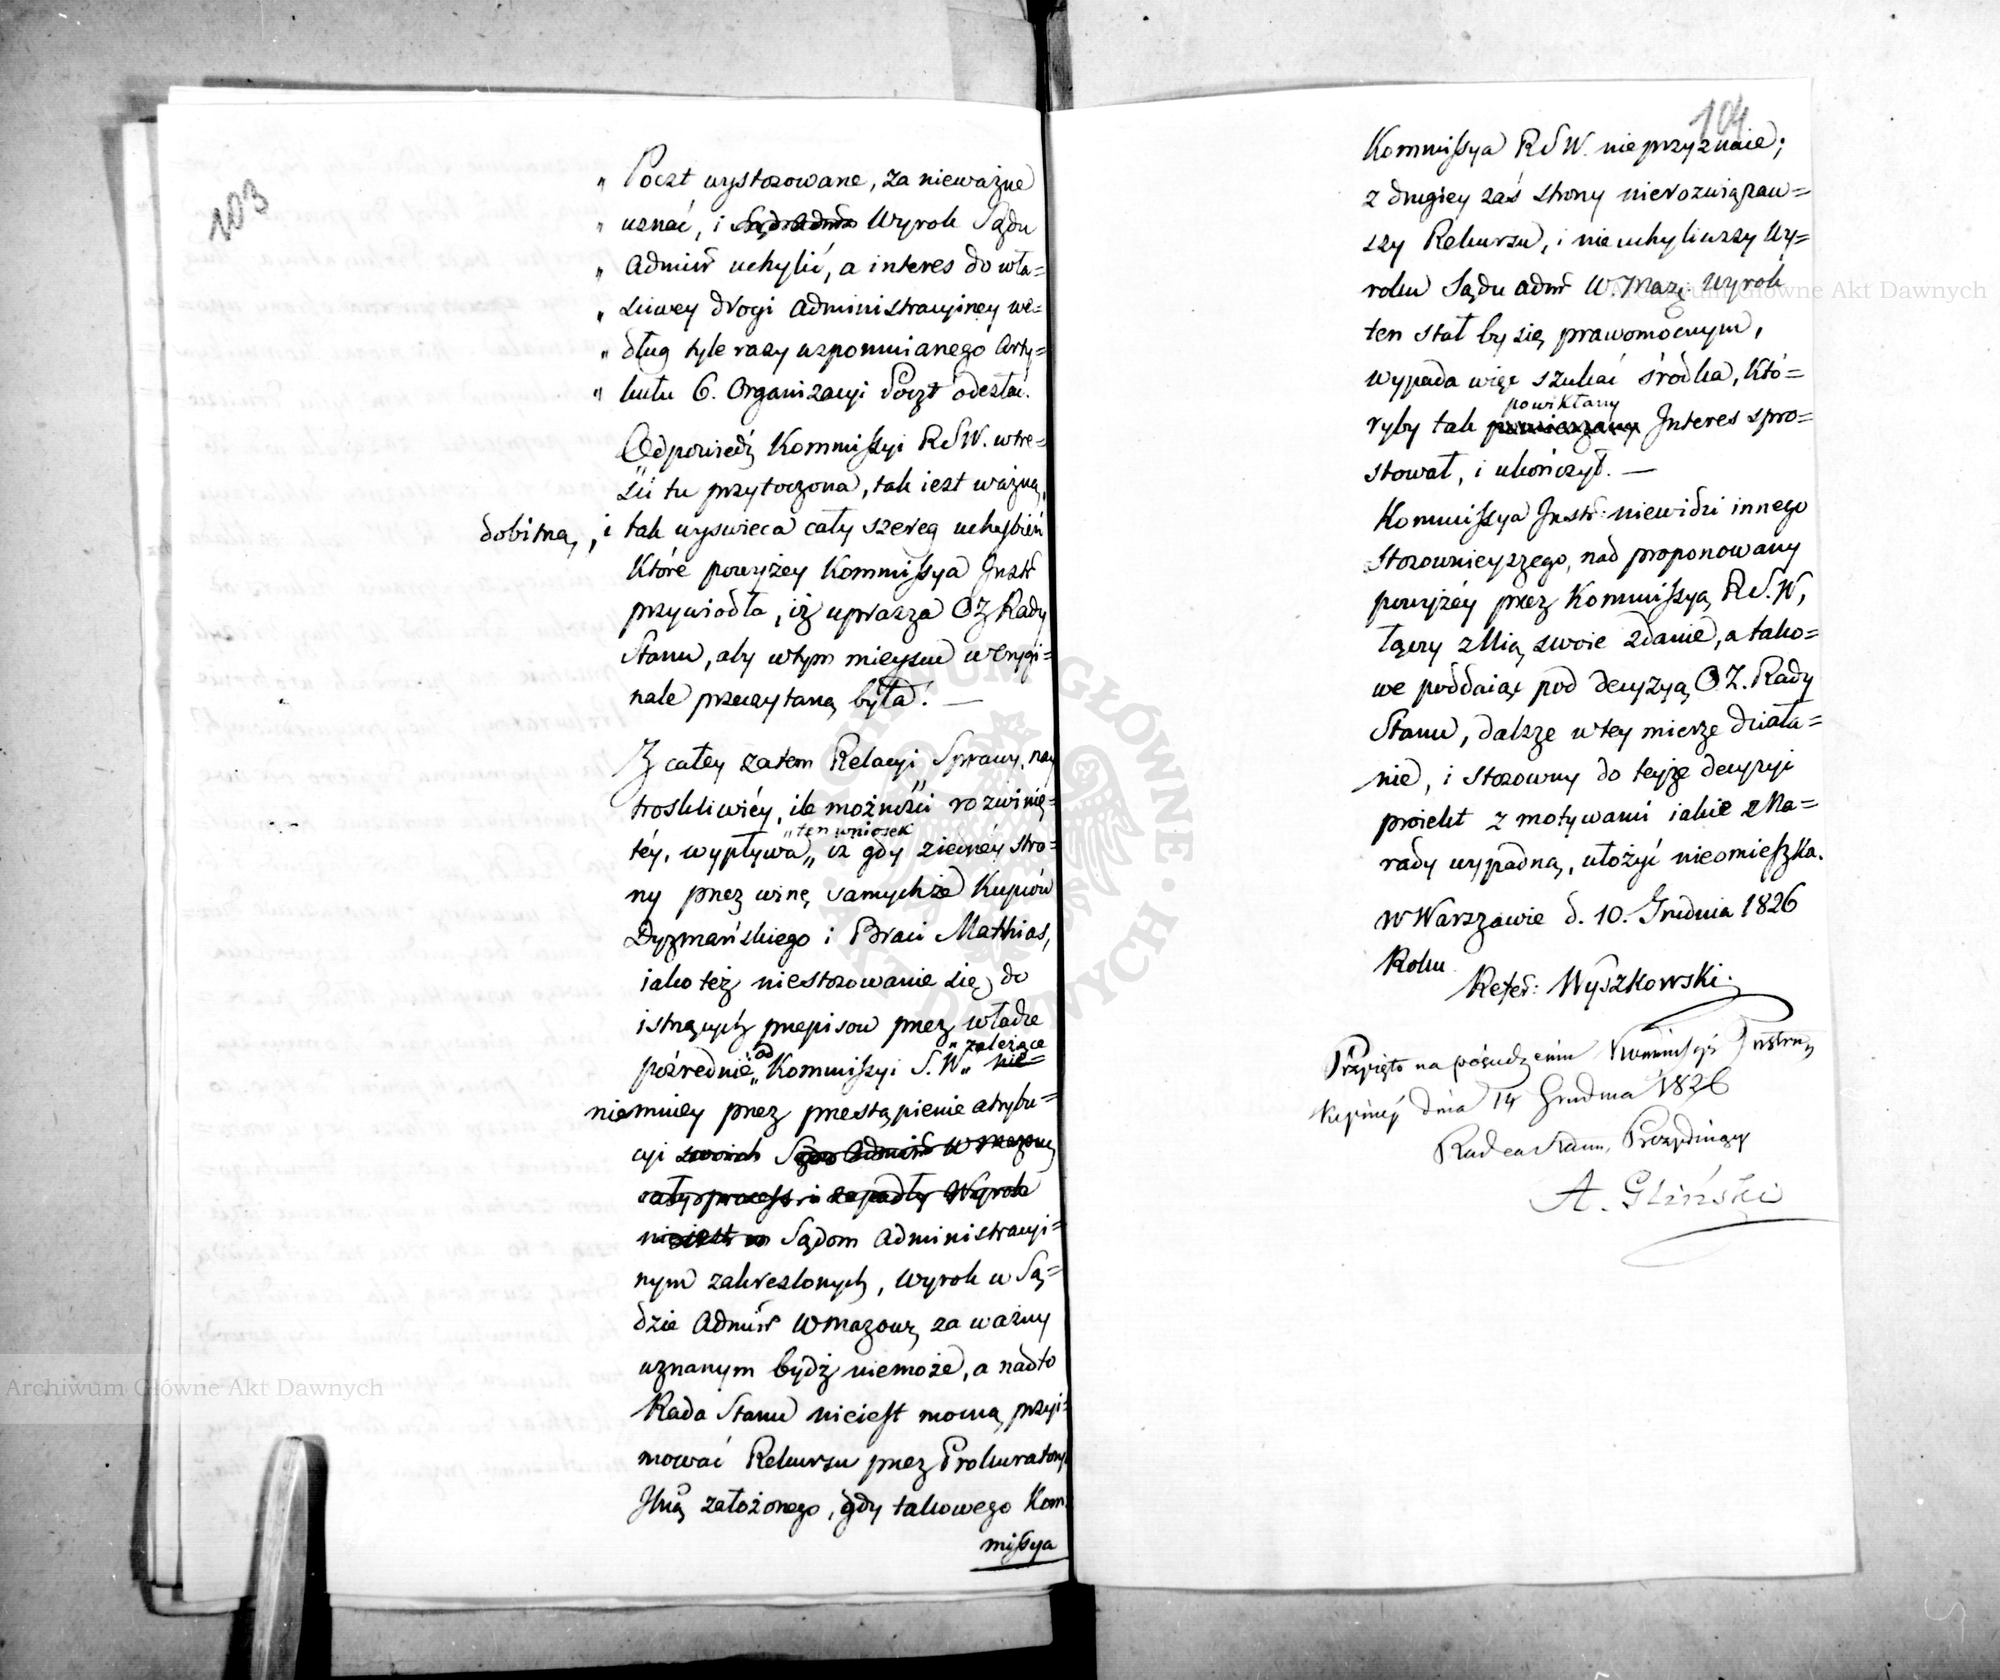 103
„ Poczt wystosowane, za nieważne
„ uznać, i Sąd Admin Wyrok Sądu
„ Admin uchylić, a interes do wła=
„ sciwey drogi administracyiney we=
„ dług tyle razy wspomnianego Arty=
„ kułu 6. Organizacyi Poczt odesłać.
Odpowiedź Kommissyi RSW. w tre=
ści tu przytoczona, tak iest ważną,
dobitną, i tak wyswieca cały szereg uchybień
Które powyżey Kommissya Instr
przywiodła, iż uprasza OZ Rady
Stanu, aby w tym mieyscu w orygi=
nale przeczytaną była! —
Z całey zatem Relacyi Sprawy, nay
troskliwiéy, ile możności rozwinię=
téy, wypływa „ten wniosek„ iż gdy ziednéy stro=
ny przez winę samychże Kupców
Dyzmańskiego i Braci Mathias,
iako też niestosowanie się do
istnących przepisow przez władze
pośrednie „od„ Kommissyi S.W. „zależące nie=
niemniey przez przestąpienie atrybu=
cyi swoich Sąd Admin W Mazow
cały process i zapadły Wyrok
nieiest w Sądom Administracyi=
nym zakreslonych, Wyrok w Są=
dzie Admin W Mazow za ważny
uznanym bydź niemoże, a nadto
Rada Stanu nieiest mocną przyi=
mować Rekursu przez Prokuratoryą
Jlną założonego, gdy takowego Kom
missya
104
Kommissya RSW. nieprzyznaie;
z drugiey zaś strony nierozwiązaw=
szy Rekursu, i nieuchyliwszy Wy=
roku Sądu Adm W. Maz: Wyrok
ten stał by się prawomocnym,
wypada więc szukać śródka, Któ=
powikłany
ryby tak pomieszany Interes spro=
stował, i ukończył. —
Kommissya Instr: niewidzi innego
Stosownieyszego, nad proponowany
powyżéy przez Kommissyą RS.W,
łączy z Nią swoie zdanie, a tako=
we poddaiąc pod decyzyą OZ. Rady
Stanu, dalsze w tey mierze działa=
nie, i stosowny do teyże decyzyi
proiekt z motywami iakie z Na=
rady wypadną, ułożyć nieomieszka.
W Warszawie d. 10. Grudnia 1826
Roku
Refer: Wyszkowski
Przyięto na posiedzeniu Kommissyi Instruk
kcyiney dnia 14 Grudnia 1826
Radca Stanu, Prezyduiący
A. Gliński
Archiwum Główne Akt Dawnych
Archiwum Główne Akt Dawnych
ARCHIWUM GŁÓWNE AKT DAWNYCH